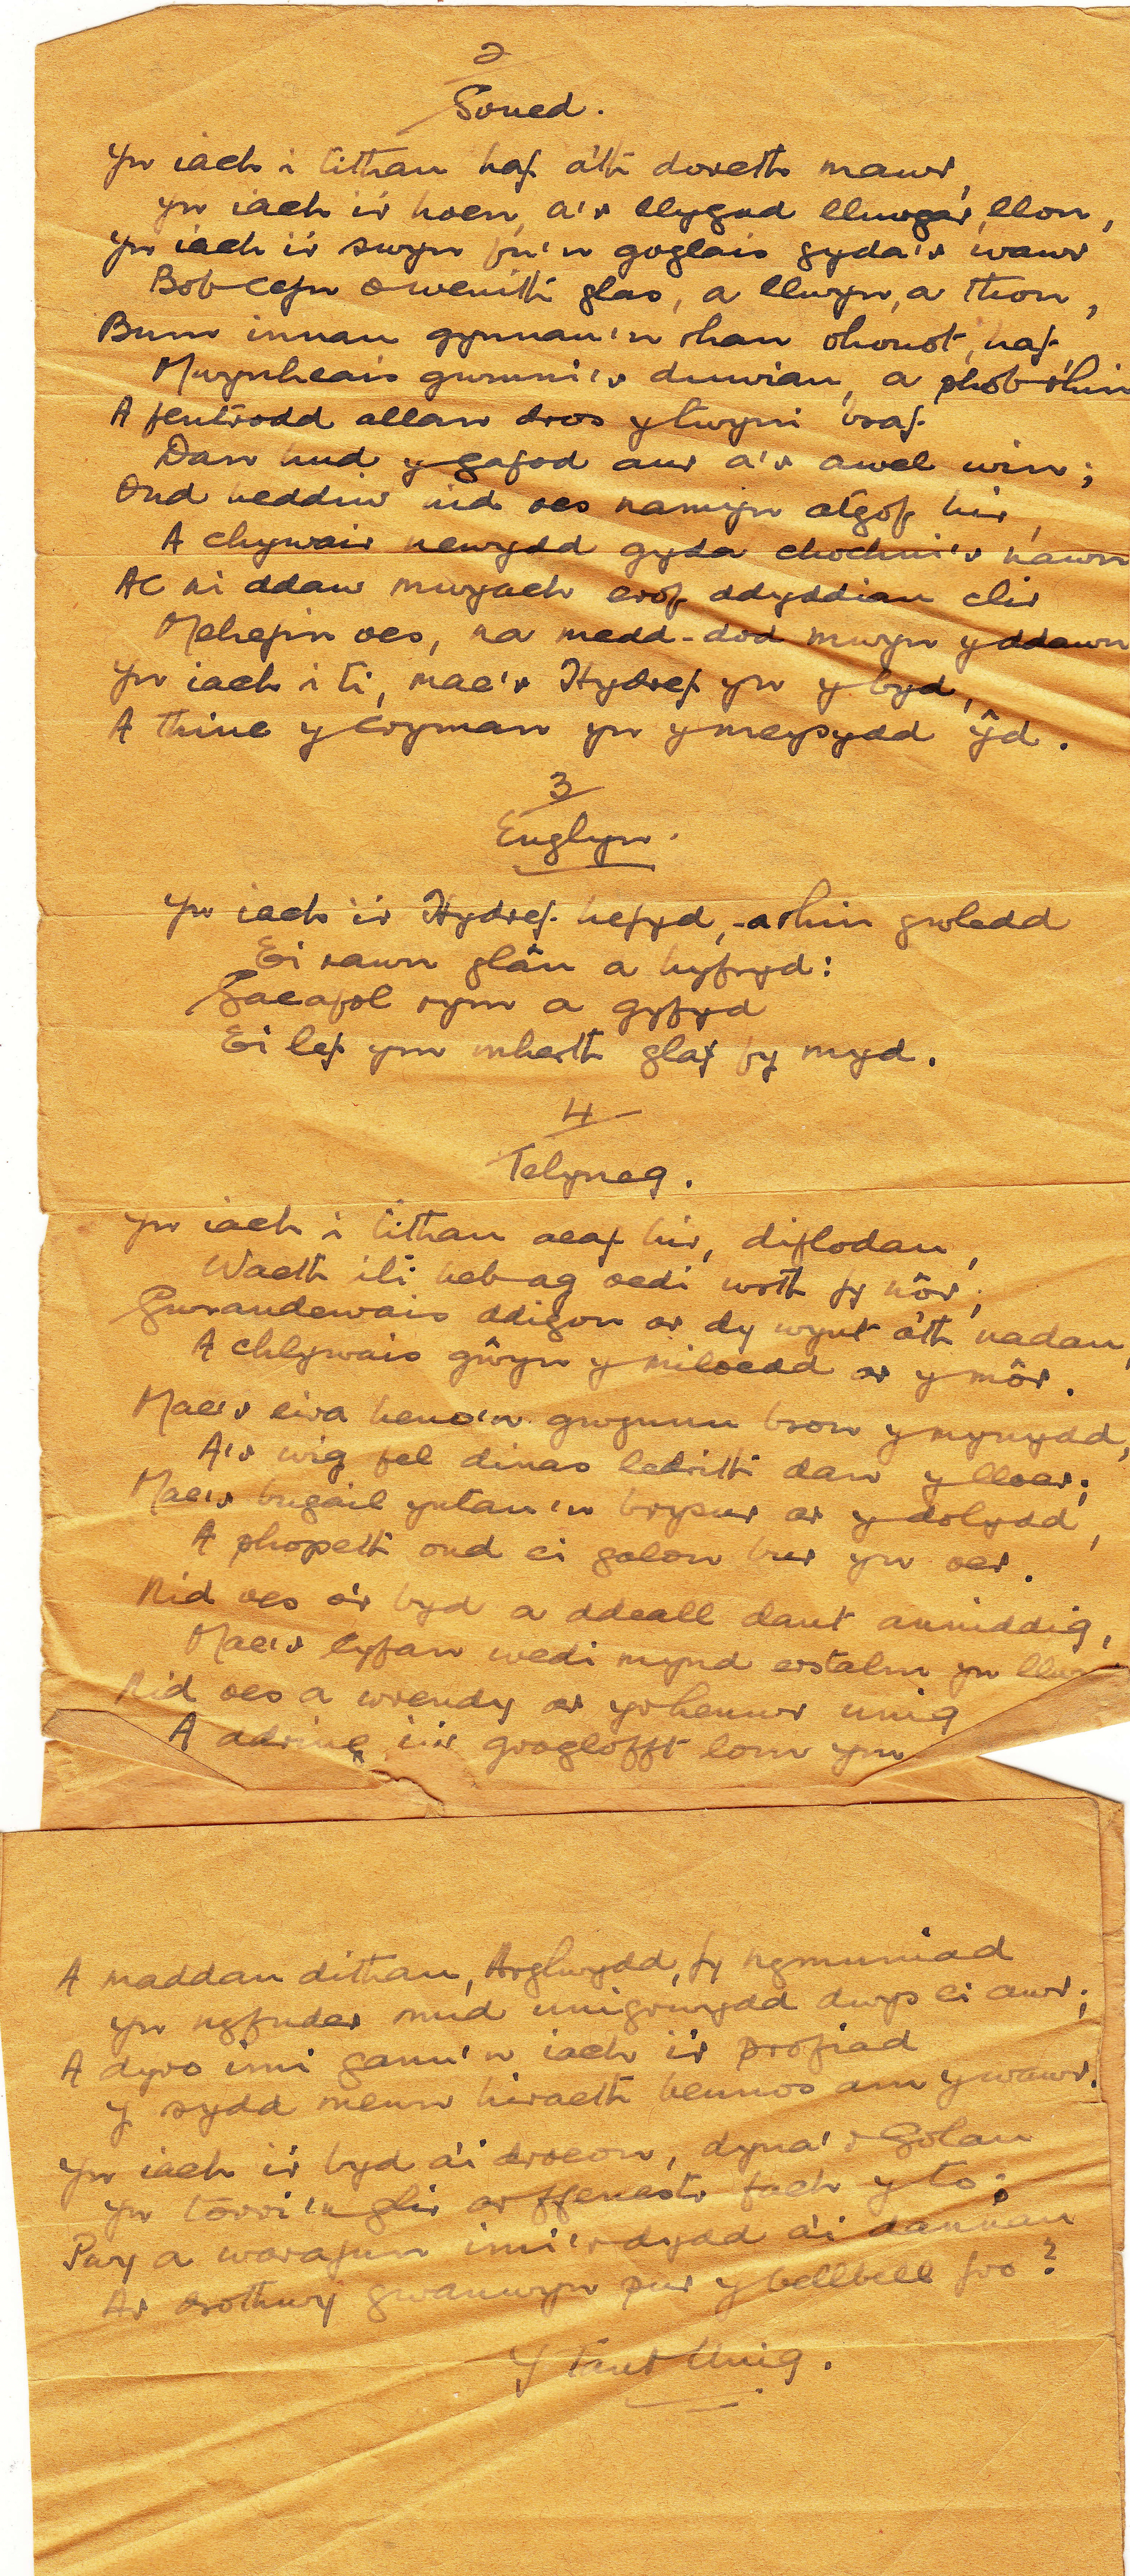 2
Soned.
Yn iach i tithau haf a'th doreth mawr,
Yn iach i'r hoen, a'r llygad llawgar, llon,
Yn iach i'r swyn fu'n goglais gyda'r wawr
Bob cefn o wenith glas, a llwyn, a thon,
Bum innau gynnau'n rhan ohonot, haf,
Mwynheais gwmni'r duwiau, a phob rhin
A fentrodd allan dros y twyni braf
Dan hud y gafod aur a'r awel win;
Ond heddiw nid oes namyn atgof hir,
A chywair newydd gyda chochni'r nawn
Ac ni ddaw mwyach erof ddyddiau clir
Mehefin oes, na medd-dod mwyn y ddawn
Yn iach i ti, mae'r Hydref yn y byd,
A thinc y cryman yn y meysydd ŷd.
3
Englyn.
Yn iach i'r Hydref hefyd, - a rhin gwledd
Ei rawn glân a hyfryd:
Gaeafol rym a gyfyd
Ei lef ym mherth glaf fy myd.
4
Telyneg.
Yn iach i tithau aeaf hir, diflodau,
Waeth iti heb ag oedi wrth fy nôr;
Gwrandewais ddigon ar dy wynt a'th nadau,
A chlywais gŵyn y miloedd ar y môr.
Mae'r eira heno'n gwynnu bron y mynydd,
A'r wig fel dinas ledrith dan y lloer;
Mae'r bugail yntau'n brysur ar y dolydd,
A phopeth ond ei galon bur yn oer.
Nid oes o'r byd a ddeall dant anniddig,
Mae'r cyfan wedi mynd erstalm yn
Nid oes a wrendy ar yr henwr unig
A adring i'r groglofft lom yn
A maddau dithau, Arglwydd, fy ngrwniad
Yn nyfnder mud unigrwydd dwys ei awr;
A dyro imi ganu'n iach i'r profiad
Y sydd mewn hiraeth hennos am y wawr.
Yn iach i'r byd a'i droeon, dyna'r Golau
Yn torri'n glir ar ffenestr fach y to;
Pwy a warafun imi'r dydd a'i dannau
Ar drothwy gwanwyn pur y bellbell fro?
Y Tant Unig.